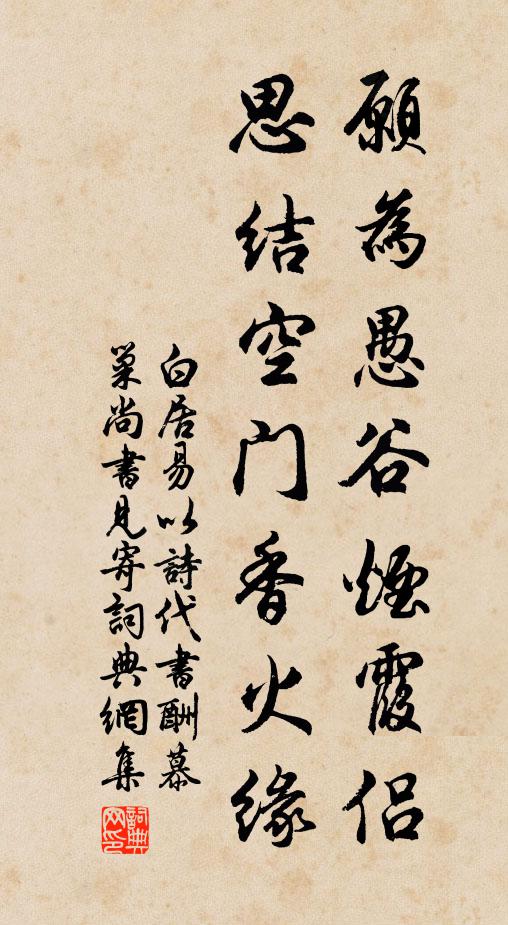 願為愚谷煙霞侶
思結空門香火緣
白居易以詩代書酬慕
巢尚書見寄詞典網集
詞典网印